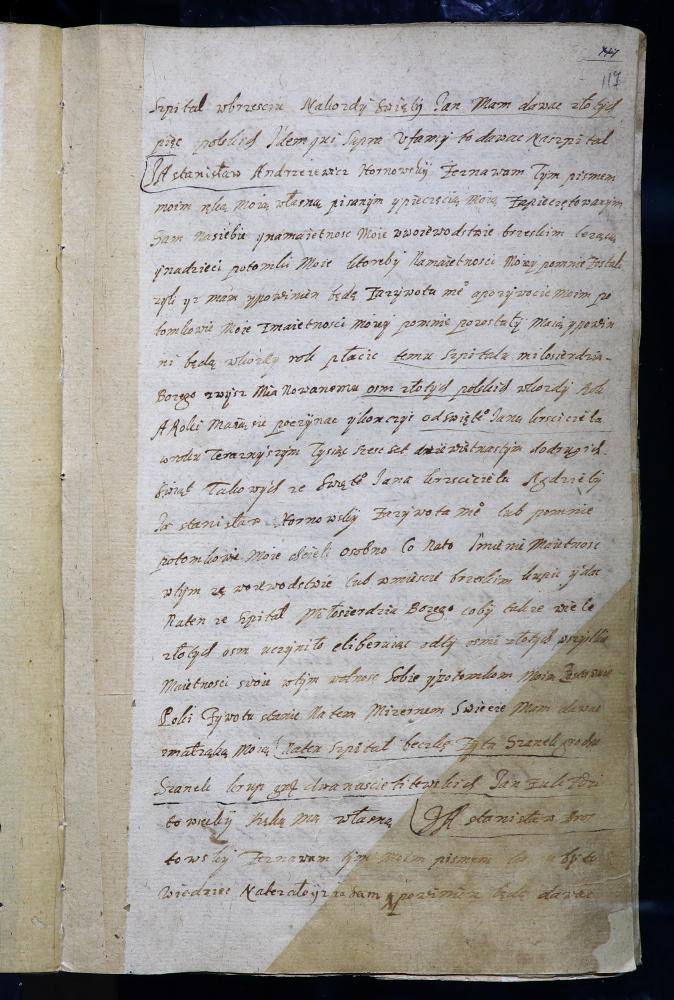 117
Szpital wbrzesciu Nakozdy Swięty Jan Mam dawac złotych
pięc polskich Idem qui supra Ufamy to dawac Naszpital
JA stanisław Andrzeiewicz Hornowsky Zeznawam Tym pismem
moim ręką Moią własną pisanym ypieczęcią Moią Zapieczętowanym
Zam Nasiebie ynamaietnosc Moie wwoiewodstwie brzeskim lezącą
ynadzieci potomki Moie ktoreby Namaietnosci Mowy pomnie Zostali
yz mam ypowinien będę Zazywota me° apozywocie Moim po
tomkowie Moie Zmaietnosci Mowy pomnie pozostały Maią ypowin
ni będą wkozdy rok płacic temu Szpitalu miłosierdzia
Bozego zwysz Mianowanemu osm złotych polskich wkozdy Rok
A Roki Maią się poczynac ykonczyc odswięte° Jana krzsciciela
wroku Teraznyszym Tysiąc szesc set dziewietnastym dodrugich
Swiąt Takowych ze Swięte° Jana krzsciciela Agdzieby
Ja stanisław Hornowsky Zazywota me° lub pomnie
potomkowie Moie chcieli osobno Co Nato Imieni Maietnosc
wtym ze woiewodstwie lub wmiescie brzeskim kupic ydac
Naten ze Szpital Miłosierdzia Bozego coby takze wiele
złotych osm uczyniło eliberuiąc odtych osmi złotych wszytkie
Maietnosci swoie wtym wolnosc Sobie ypotomkom Moim Zostawuie
Poki Zywota stanie Natem Mizernem Swiecie Mam dawac
zmałząką Moią Naten Szpital beczkę Zyta Szanek grochu
Szanek krup dwanascie litewskich Jan
towecky Ręką Mą własną JA stanisław
towsky Zeznawam tym Moim pismem
Wiedziec Nalezało yz mam ypowinien będę dawac